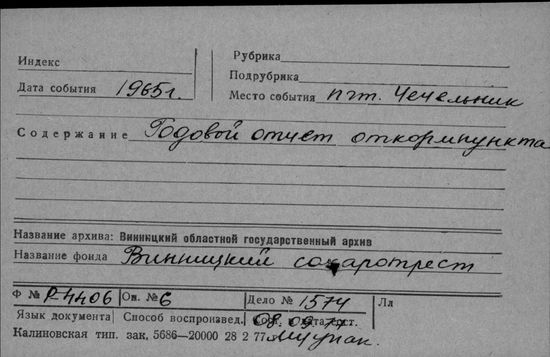 Индекс
Рубрика
Подрубрика
Дата события 1965г.
Место события пгт. Чечельник
Содержание Годовой отчет откормпункта
Название архива: Винницкий областной государственный архив
Название фонда Винницкий сахаротрест
Ф № Р-4406 Оп. №6 Дело № 1574 Лл
Язык документа Способ воспроизвед.
Калиновская тип. зак, 5686—20000 28 2 77